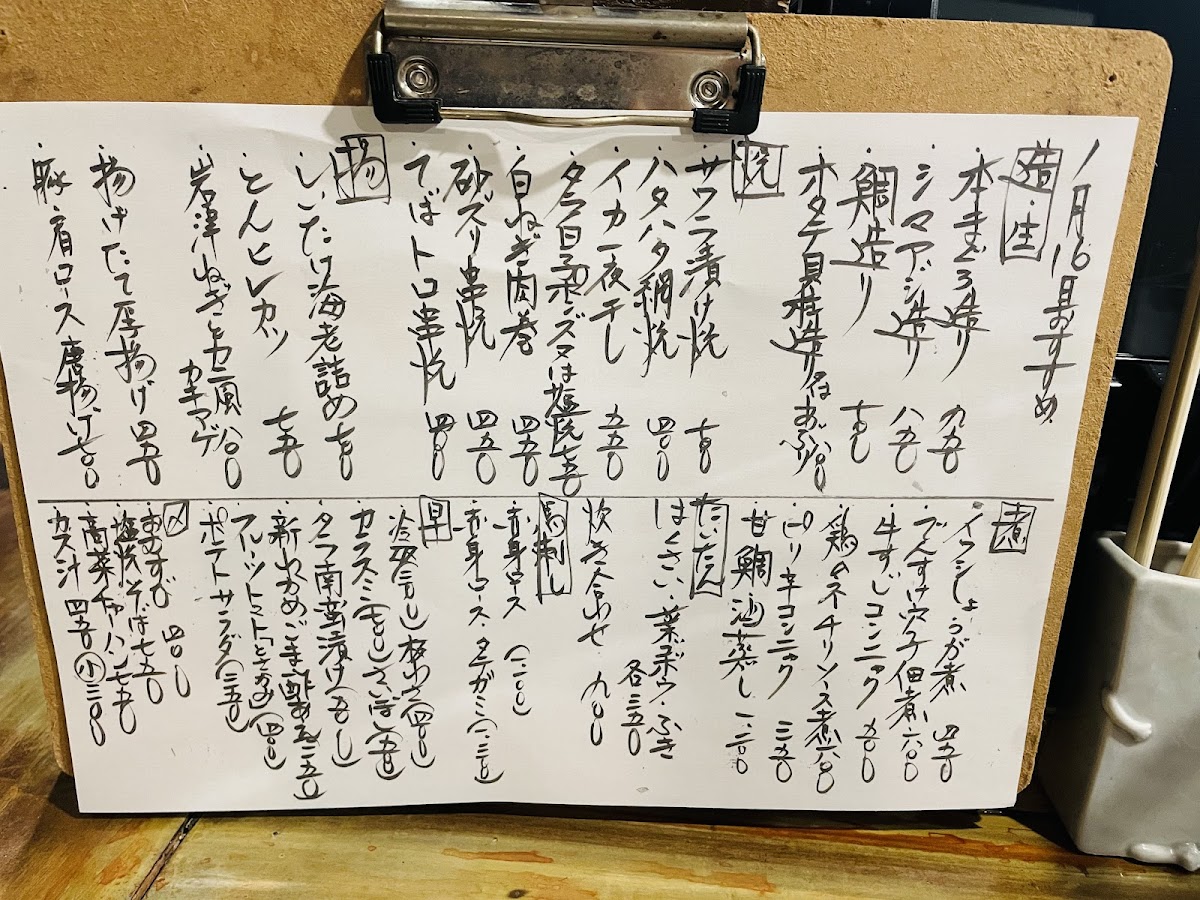 1月16日おすすめ
造・生
・本まぐろ造り 九五〇
・シマアジ造り 八五〇
・鯛造り 七五〇
・ホタテ貝柱造り又はあぶり 八〇〇
焼
・サワラ漬け焼 七〇〇
・ハタハタ網焼 四〇〇
・イカ一夜干し 五五〇
・タラ白子ポンズ又は塩焼 七五〇
・白ねぎ肉巻 四五〇
・砂ズリ串焼 四五〇
・てばトロ串焼 四〇〇
揚
・しいたけ海老詰め 七〇〇
・とんヒレカツ 七五〇
・岩津ねぎとカニ風 八〇〇
カキアゲ
・揚げたて厚揚げ 四五〇
・豚肩ロース唐揚げ 七〇〇
煮
・イワシしょうが煮 四五〇
・でんすけ穴子佃煮 六〇〇
・牛すじコンニャク 五〇〇
・鶏のネギチリソース煮 六〇〇
・ピリ辛コンニャク 三五〇
・甘鯛酒蒸し 一二〇〇
たいたん
はくさい、菜、ゴボウ・ふき
各三五〇
炊き合わせ 九〇〇
馬刺し
・赤身ロース (一二〇〇)
・赤身ロース・タテガミ (一三〇〇)
早
・タラ南蛮漬け
・新わかめごま酢あえ 三五〇)
・フルーツトマト
・ポテトサラダ (三五〇)
〆
・おむすび 四〇〇
・塩焼そば 七五〇
・高菜チャーハン 七五〇
・カス汁 四五〇 小 三〇〇